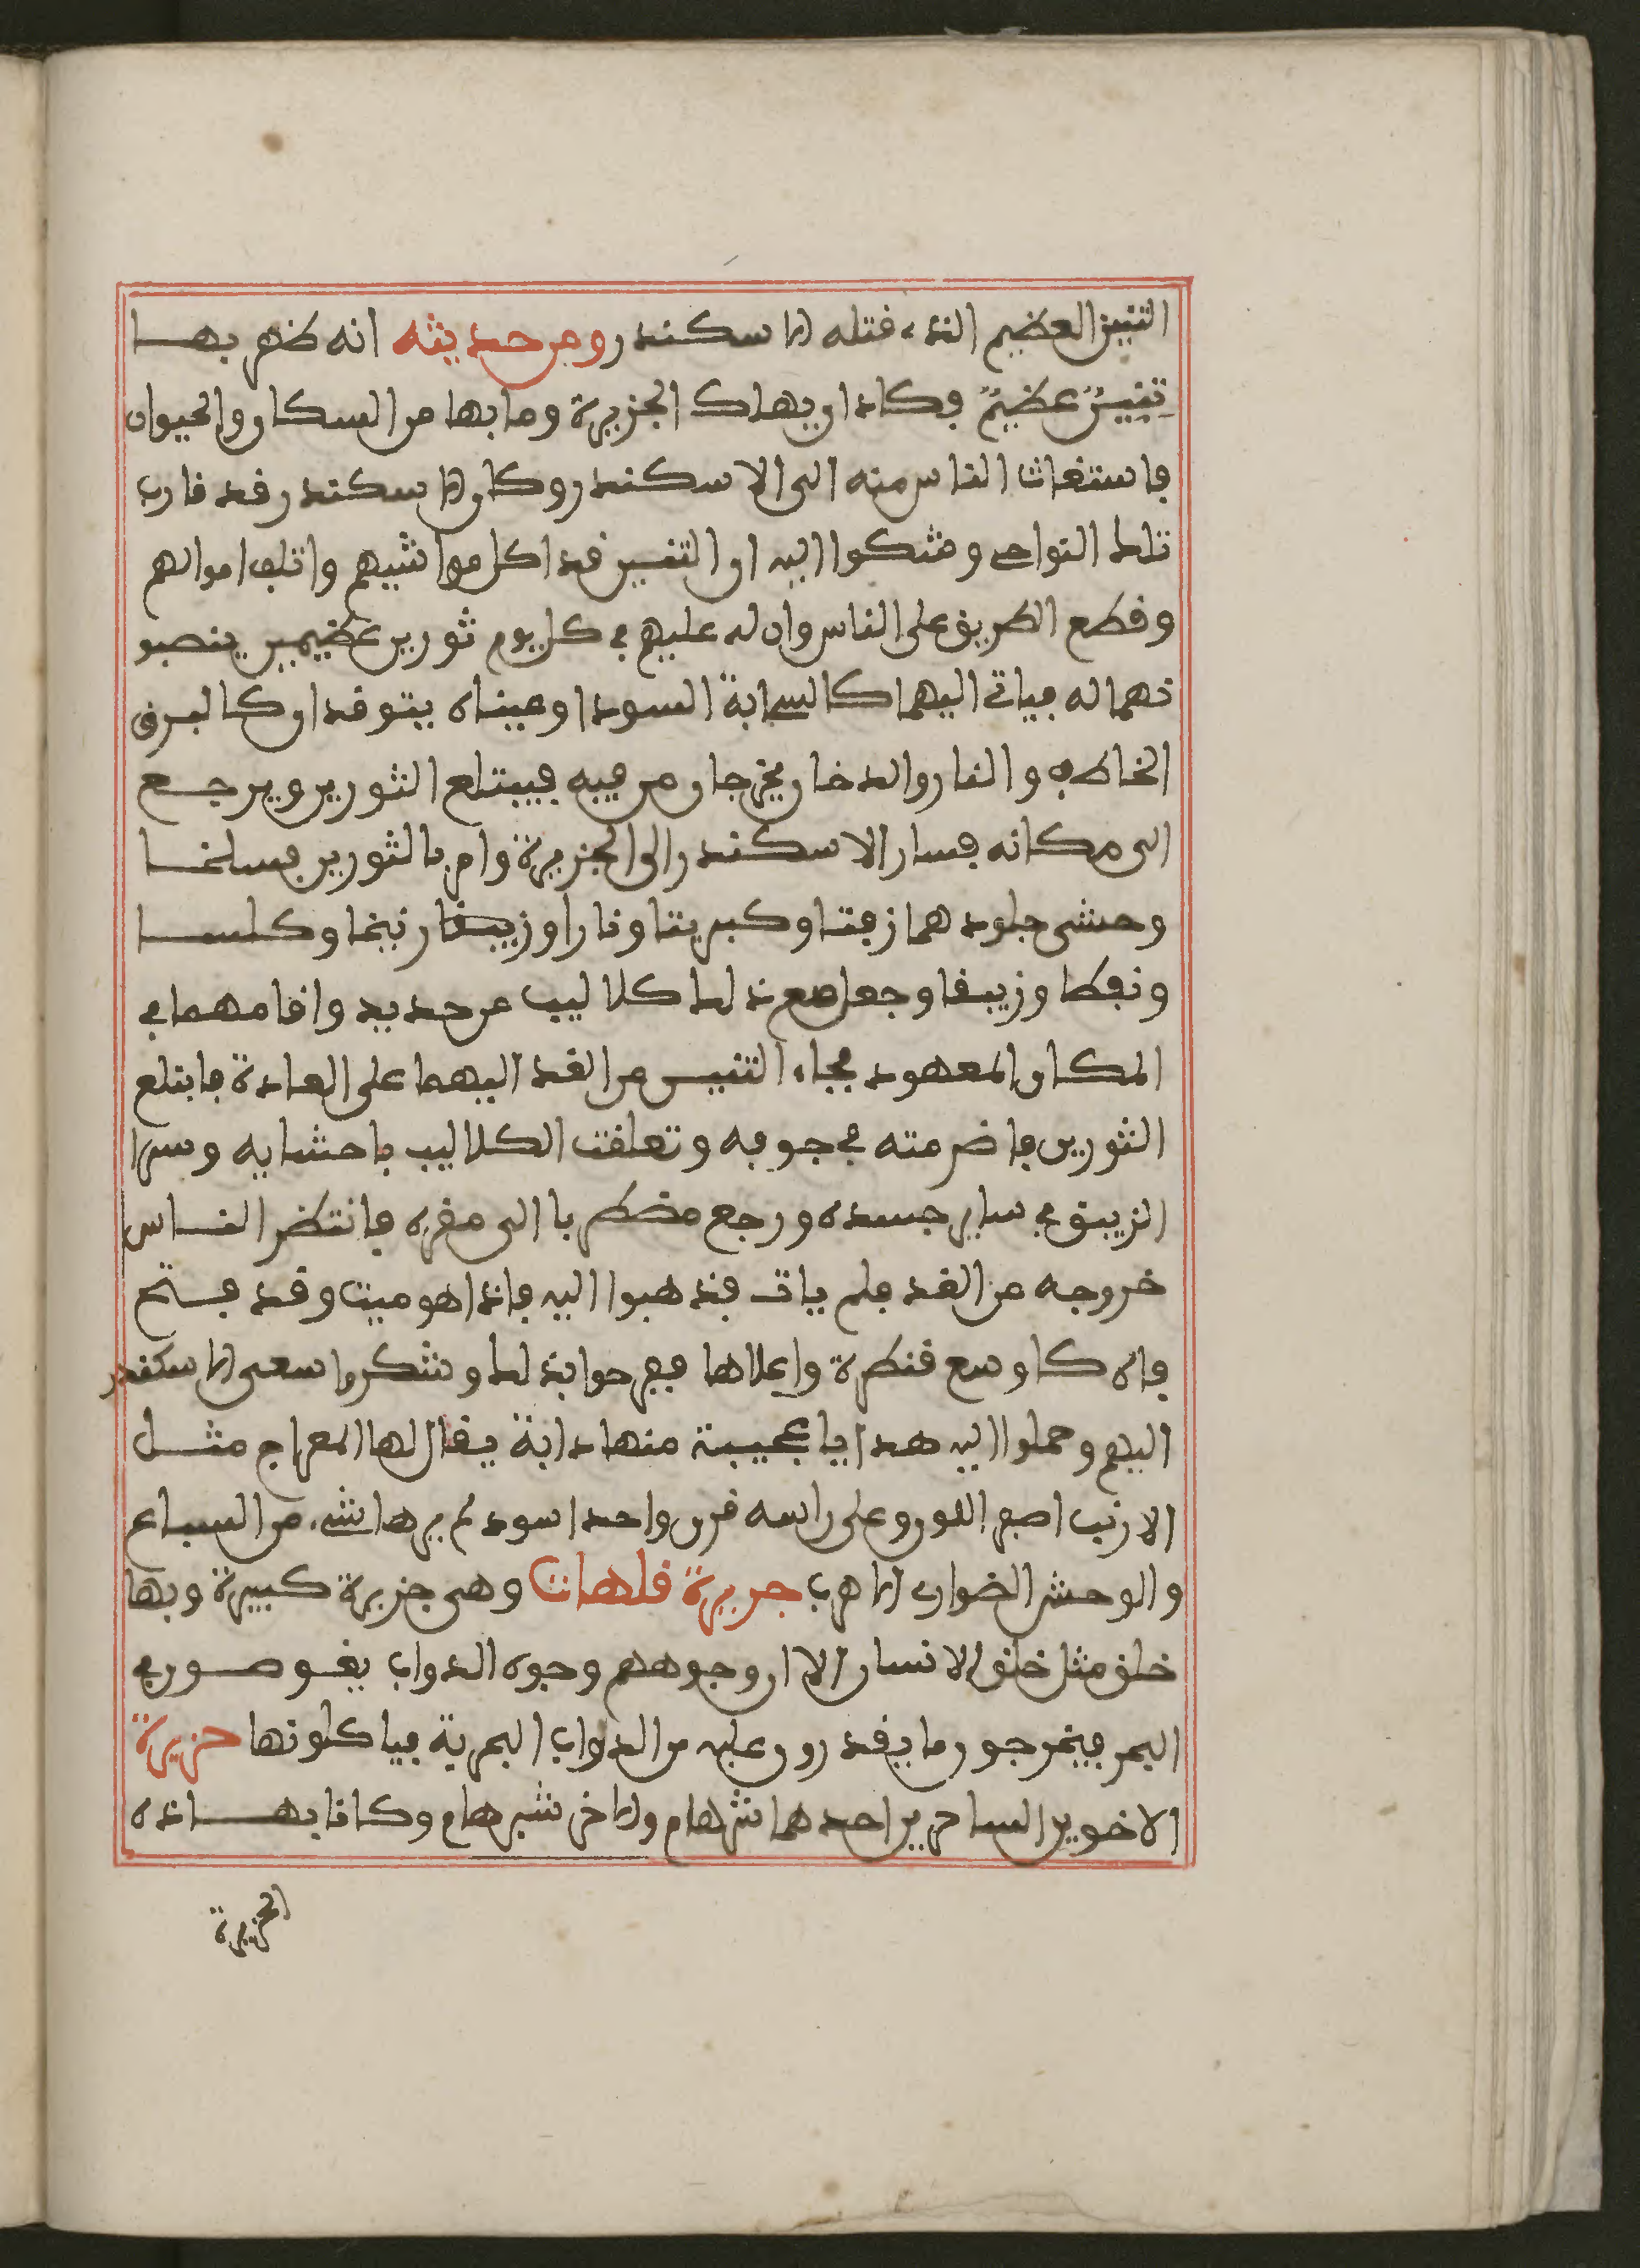 التنين العظيم الذي قتله الاسكندر ومن حديثه انه ظهر بها
تنين عظيم فكاد ان يهلك الجزيرة وما بها من السكان والحيوان
فاستغاث الناس منه الى الاسكندر وكان الاسكندر قد قارب
تلك النواحي وشكوا اليه ان التنين قد اكل مواشيهم واتلف اموالهم
وقطع الطريق على الناس وان له عليهم في كل يوم ثورين عظيمين ينصبو
نهما له فياتي اليهما كالسحابة السودا وعيناه يتوقدان كالبرق
الخاطف والنار والدخان يخرجان من فيه فيبتلع الثورين ويرجع
الى مكانه فسار الاسكندر الى الجزيرة وامر بالثورين فسلخا
وحشى جلودهما زفتا وكبريتا ونارا وزيبقا رنيخا وكلسا
ونفطا وزيبقا وجعل مع ذلك كلاليب من حديد واقامهما في
المكان المعهود فجاء التنين من الغد اليهما على العادة فابتلع
الثورين فاضرمته في جوفه وتعلقت الكلاليب باحشايه وسرا
الزيبق في ساير جسده ورجع مضطربا الى مقره فانتظر الناس
خروجه من الغد فلم يات فذهبوا اليه فاذا هو ميت وقد فتح
فاه كاوسع قنطرة واعلاها ففرحوا بذلك وشكروا سعى الاسكندر
اليهم وحملوا اليه هدايا عجيبة منها دابة يقال لها المعراج مثل
الارنب اصفر اللون وعلى راسه قرن واحد اسود لم يرها شيء من السباع
والوحش الضواري الا هرب جزيرة قلهات وهي جزيرة كبيرة وبها
خلق مثل خلق الانسان الا ان وجوههم وجوه الدواب يغوصون في
البحر فيخرجون ما يقدرون عليه من الدواب البحرية فياكلونها جزيرة
الاخوين الساحرين احدهما شرهام والاخر شبرهام وكانا بهاذه
الجزيرة